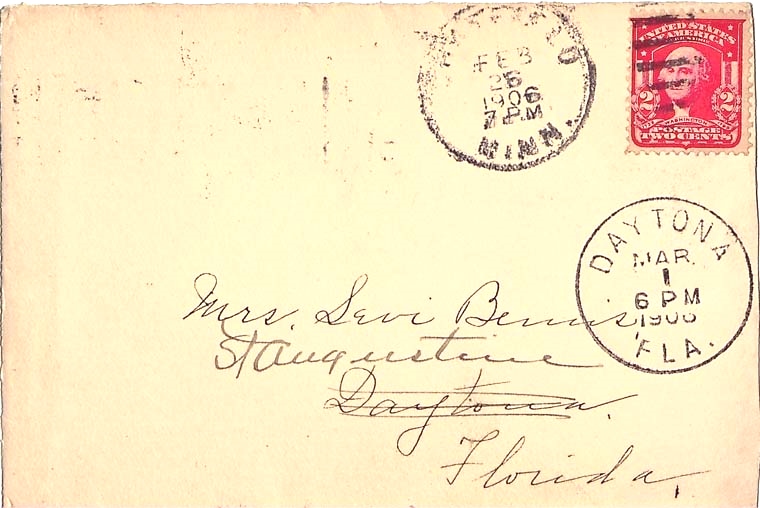 FEB
06
MINN.
UNITED STATES
OF AMERICA
2 2
WASHINGTON
POSTAGE
TWO CENTS
DAYTONA
MAR.
1
6 PM
1906
FLA.
Mrs. Levi Bemis
St Augustine
Daytona.
Florida,